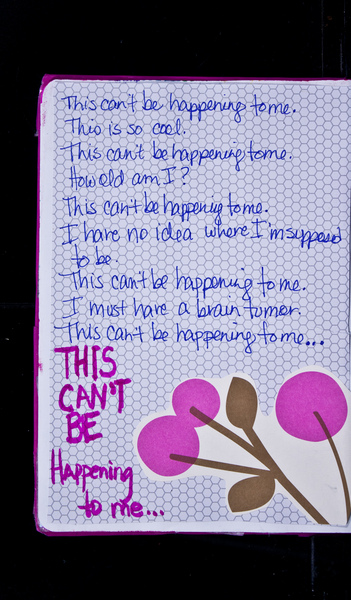 This can't be happening to me.
This is so cool.
This can't be happening to me.
How old am I?
This can't be happening to me.
I have no idea where I'm supposed
to be.
This can't be happening to me.
I must have a brain tumor.
This can't be happening to me...
THIS
CAN'T
BE
Happening
to me...